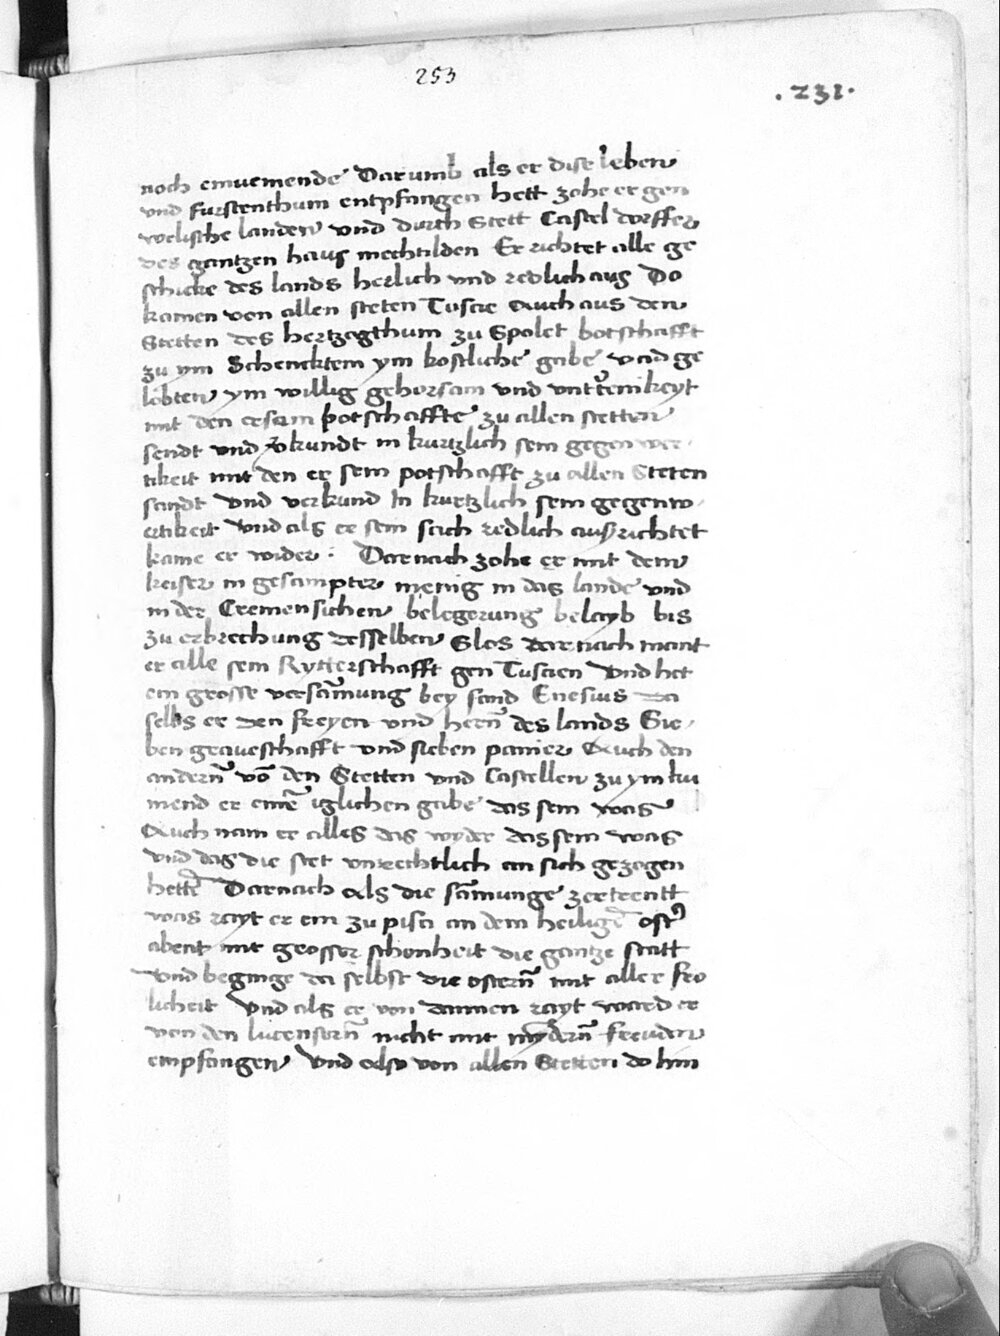 253
.231.
noch einnemende Darumb als er dise leben
vnd furstenthum entpfangen hett zohe er gen
welische landen vnd durch Stett Castel dorffer
des gantzen haus mechtilden Er richtet alle ge
schicke des lands herlich vnd redlich aus Do
kamen von allen steten Tuscie Auch aus den
Stetten des hertzogthum zu Spolet botschafft
zu ym Schenckten ym kostliche gabe vnd ge
lobten ym willig gehorsam vnd
mit den potschaffte zu allen stetten
sendt vnd vkundt in kurtzlich sein gegenwer
tikeit mit den er sein potschafft zu allen Steten
sandt vnd verkund In kurtzlich sein gegenw
ertikeit Vnd als er sein sach redlich außrichtet
kame er wider : Darnach zohe er mit dem
keiser in gesampter menig in das lande vnd
in der Cremensichen belegerung belayb bis
zu erbrechung desselben Slos darnach mant
er alle sein Rytterschafft gen Tuscien Vnd het
ein grosse versāmung bey sand Enesius da
selbs er den freyen vnd hern̄ des lands Sie
ben graueschafft vnd sieben panier Auch den
andern̄ vō den Stetten vnd Castellen zu ym ku
mend er einē iglichen gabe das sein was
Auch nam er alles das wyder das sein was
vnd das die stet vnrechtlich an sich gezogen
hettē Darnach als die sāmunge zertrentt
was rayt er ein zu pisa an dem heiligē ost
abent mit grosser schonheit die gantze statt
Vnd beginge da selbst die ostern̄ mit aller fro
licheit Vnd als er von dannen rayt ward er
von den lucensern̄ nicht mit mȳdern̄ freuden
empfangen Vnd also von allen Stetten do hin